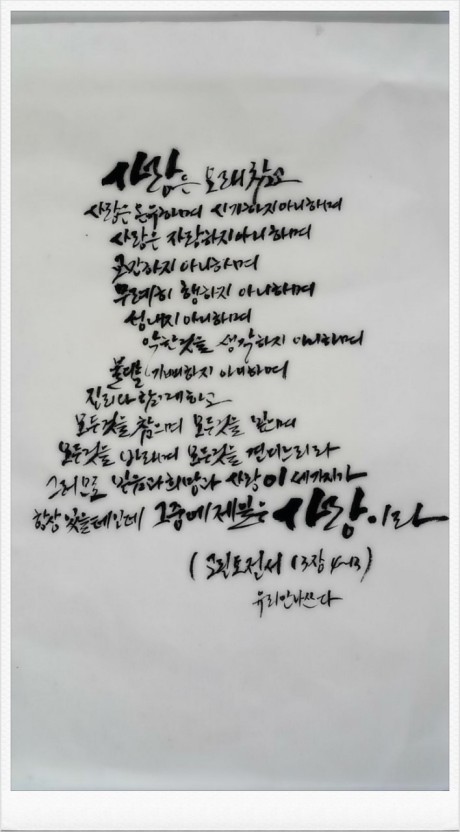 사랑은 오래참고
사랑은 온유하며 시기하지아니하며
사랑은 자랑하지아니하며
교만하지 아니하며
무례히 행하지 아니하며
성내지 아니하며
악한것을 생각하지 아니하며
불의를 기뻐하지 아니하며
진리와 함께하고
모든것을 참으며 모든것을 믿으며
모든것을 바라며 모든것을 견디느니라
그러므로 믿음과 희망과 사랑 이 세가지가
항상 있을테인데 그중에 제일은 사랑이라
(고린도전서 13장 4-13)
유리안나쓰다